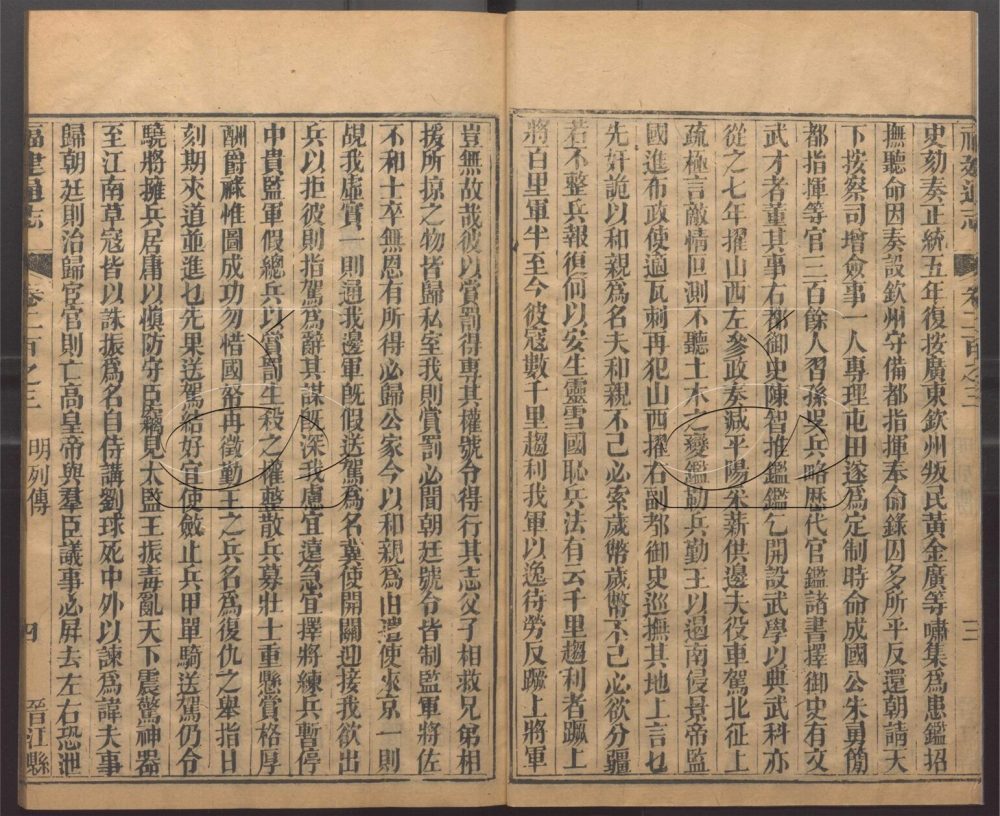 福建通志 卷二百之三 三
史劾奏正統五年復按廣東欽州叛民黃金廣等嘯集爲患鑑招
撫聽命因奏設欽州守備都指揮奉命錄囚多所平反還朝請天
下按察司增僉事一人專理屯田遂爲定制時命成國公朱勇簡
都指揮等官三百餘人習孫吳兵略歷代官鑑諸書擇御史有文
武才者董其事右都御史陳智推鑑鑑乞開設武學以典武科亦
從之七年擢山西左參政奏減平陽米薪供邊夫役車駕北征上
疏極言敵情叵測不聽土木之變鑑勒兵勤王以遏南侵景帝監
國進布政使適瓦剌再犯山西擢右副都御史巡撫其地上言乜
先奸詭以和親爲名夫和親不已必索歲幣歲幣不已必欲分疆
若不整兵報復何以安生靈雪國恥兵法有云千里趨利者蹶上
將百里軍半至今彼寇數千里趨利我軍以逸待勞反蹶上將軍
豈無故哉彼以賞罰得專其權號令得行其志父子相救兄弟相
援所掠之物皆歸私室我則賞罰必聞朝廷號令皆制監軍將佐
不和士卒無恩有所得必歸公家今以和親爲由遣使來京一則
覘我虛實一則通我邊軍旣假送駕爲名冀使開關迎接我欲出
兵以拒彼則指駕爲辭其謀旣深我慮宜遠急宜擇將練兵暫停
中貴監軍假總兵以賞罰生殺之權整散兵募壯士重懸賞格厚
酬爵祿惟圖成功勿惜國帑再徵勤王之兵名爲復仇之舉指日
刻期夾道並進乜先果送駕結好宜使斂止兵甲單騎送駕仍令
驍將擁兵居庸以愼防守臣竊見太監王振毒亂天下震驚神器
至江南草寇皆以誅振爲名自侍講劉球死中外以諫爲諱夫事
歸朝廷則治歸宦官則亡高皇帝與羣臣議事必屏去左右恐泄
福建通志 卷二百之三 明列傳 四 晉江縣